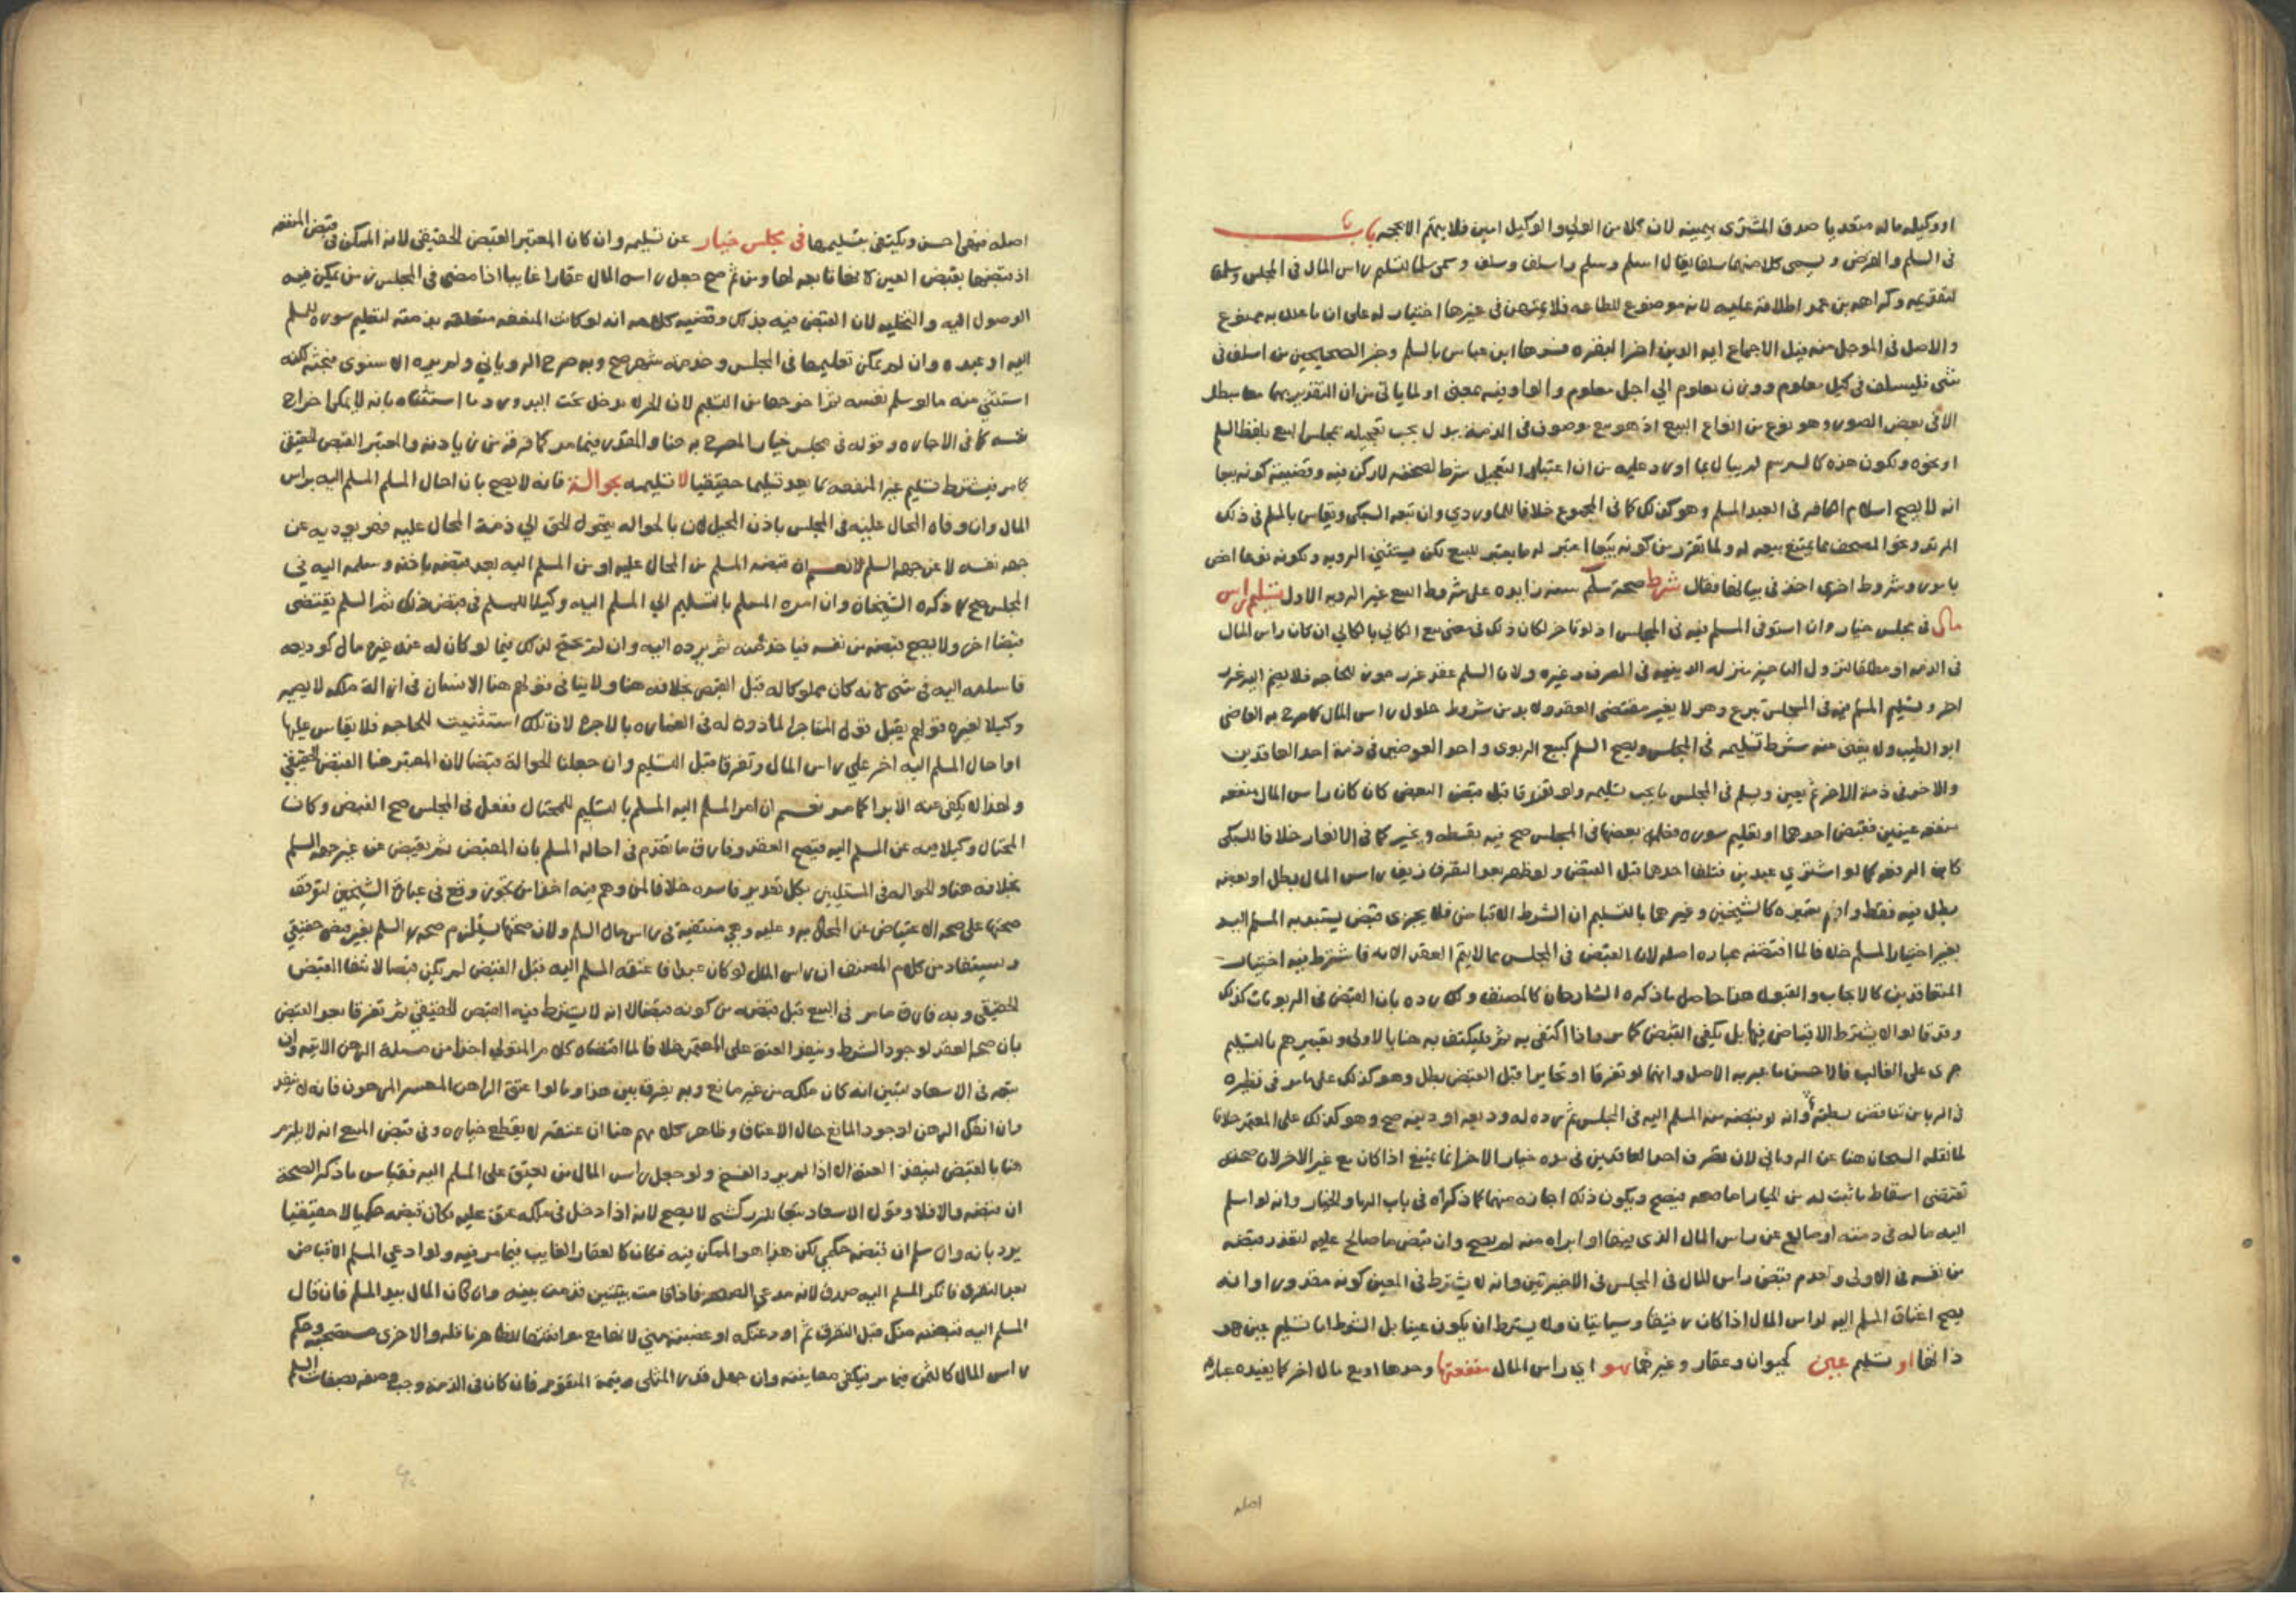 او وكيله ماله متعديا صدق المشتري بيمينه لان كلا من الولي والوكيل امين فلا يتهم الا بحجه باب
فى السلم والقرض ويسمى كلا منهما سلفا يقال اسلم وسلم واسلف وسلف وسمى سلما لتسليم راس المال فى المجلس وسلفا
لتقديمه وكراهه بن عمر اطلاقه عليه لانه موضوع للطاعه فلا يمتهن فى غيرها اختيار له على ان ما علل به ممنوع
والاصل فى الموجل منه قبل الاجماع ايه الدين اخر البقره فسرها ابن عباس بالسلم وخبر الصحيحين من اسلف فى
شى فليسلف فى كيل معلوم ووزن معلوم الي اجل معلوم والواو فيه بمعنى او لما ياتى من ان التقدير بهما معا مبطل
الا فى بعض الصور وهو نوع من انواع البيع اذ هو بيع موصوف فى الذمة ببدل يجب تعجيله بمجلس البيع بلفظ السلم
او نحوه وتكون هذه كالرسم لم يبال بما اورد عليه من ان اعتبار التعجيل شرط لصحته لا ركن فيه وقضية كونه بيعا
انه لا يصح اسلام الكافر فى العبد المسلم وهو كذلك كما فى المجموع خلافا للماوردي وان تبعه السبكى ويقاس بالمسلم فى ذلك
المرتد ونحو المصحف مما يمتنع بيعه له ولما تقرر من كونه بيعا اعتبر له ما يعتبر للبيع لكن يستثنى الرويه ولكونه نوعا اخص
شروط اخرى اخذ فى بيانها فقال شرط صحة سلم معه زايده على شروط البيع غير الرويه الاول تسليم راس
مال فى مجلس خيار وان استوفى المسلم فيه فى المجلس اذ لو تاخر لكان ذلك فى معنى بيع الكالي بالكالي ان كان راس المال
فى الذمه او مطلقا لنزول التاخير منزله الدينيه فى الصرف وغيره ولان السلم عقد غرر جوز للحاجه فلا يضم اليه غرر
اخر وتسليم المسلم فيه فى المجلس تبرع وهو لا يغير مقتضى العقد ولا بد من شروط حلول راس المال كما صرح به القاضى
ابو الطيب ولا يغنى عنه شرط تسليمه فى المجلس ويصح السلم كبيع الربوى واحد العوضين فى ذمة احد العاقدين
والاخر فى ذمة الاخر ثم يعين ويسلم فى المجلس ما يجب تسليمه ولو تفرقا قبل قبض البعض كان كان راس المال منفعه
منفعه عينين فقبض احدهما او تعليم سوره فعلم بعضها فى المجلس صح فيه بقسطه ويخير كما فى الانوار خلافا للسبكى
كابن الرفعه كما لو اشترى عبدين فتلف احدهما قبل القبض ولو ظهر بعد التفرق زيف راس المال بطل او بعضه
بطل فيه فقط وافهم تعبيره كالشيخين وغيرهما بالتسليم ان الشرط الاقباض فلا يجزى قبض يستبد به المسلم اليه
بغير اختيار المسلم خلافا لما اقتضته عباره اصله لان القبض فى المجلس مما لا يتم العقد الا به فاشترط فيه اختيار
المتعاقدين كالايجاب والقبول هذا حاصل ما ذكره الشارحان كالمصنف ولك رده بان القبض فى الربويات كذلك
وقد قالوا لا يشترط الاقباض فيها بل يكفى القبض كما مر فاذا اكتفى به ثم فليكتف به هنا بالاولى وتعبيرهم بالتسليم
جرى على الغالب فالاحسن ما عبر به الاصل وانهما لو تفرقا او تخايرا قبل القبض بطل وهو كذلك على ما مر فى نظيره
فى الربا من تناقض بسطته وانه لو قبضه منه المسلم اليه فى المجلس ثم رده له وديعه او دينه صح وهو كذلك على المعتمر خلافا
لما نقله الشيخان هنا عن الروياني لان تصرف احد العاقدين فى مده خيار الاخر انما يمتنع اذا كان مع غير الاخر لان صحته
تقتضى اسقاط ما ثبت له من الخيار اما معه فيصح ويكون ذلك اجازه منهما كما ذكراه فى باب الربا والخيار وانه لو اسلم
اليه ماله فى ذمته او صالح عن راس المال الذى بينهما او ابراه منه لم يصح وان قبض ما صالح عليه لتعذر قبضه
من نفسه فى الاولى وعدم قبض راس المال فى المجلس فى الاخيرتين وانه لا يشترط فى المعين كونه مقدورا وانه
يصح اعتاق المسلم اليه لراس المال اذا كان رقيقا وسياتيان ولا يشترط ان يكون عينا بل الشرط اما تسليم عين هى
ذاتها او تسليم عين كحيوان وعقار وغيرهما هو اي راس المال منفعتها وحدها او مع مال اخر كما يفيده عباره
اصله
اصله فهى احسن ويكتفى بتسليمها فى مجلس خيار عن تسليمه وان كان المعتبر القبض الحقيقى لانه الممكن فى قبض المنفعه
اذ قبضها بقبض العين لانها تابعه لها ومن ثم صح جعل راس المال عقارا غايبا اذا مضى فى المجلس زمن يمكن فيه
الوصول اليه والتخليه لان القبض فيه بذلك وقضيه كلامه انه لو كانت المنفعه متعلقه ببدنه كتعليم سوره للمسلم
اليه او عبده وان لم يمكن تعليمها فى المجلس وخدمته شهر صح وبه صرح الروياني ولم يرده الاسنوى فبحثه لكنه
استثنى منه ما لو سلم نفسه ثم اخرجها من التسليم لان الحر لا يدخل تحت اليد ورد ما استثناه بانه لا يمكن اخراج
نفسه كما فى الاجاره وقوله فى مجلس خيار المصرح به هنا والمقدر فيما مر كما عرفته من زيادته والمعتبر القبض الحقيقى
كما مر فيشترط تسليم غير المنفعه بما يعد تسليما حقيقيا لا تسليمه بحوالة فانه لا يصح بان احال المسلم المسلم اليه براس
المال وان وفاه المحال عليه فى المجلس باذن المحيل لان بالحواله يتحول الحق الي ذمة المحال عليه فهو يوديه عن
جهه نفسه لا عن جهه المسلم نعم ان قبضه المسلم من المحال عليه او من المسلم اليه بعد قبضه باذنه وسلمه اليه فى
المجلس صح كما ذكره الشيخان وان امره المسلم بالتسليم الي المسلم اليه وكيلا للمسلم فى قبض ذلك ثم السلم يقتضى
قبضا اخر ولا يصح قبضه من نفسه فياخذ منه ثم يرده اليه وان لم يحتج لذلك فيما لو كان له عند غيره مال كوديعه
فاسلمه اليه فى شى لانه كان مملوكا له قبل القبض بخلافه هنا ولا ينافى قولهم هنا الانسان فى ازالة ملكه لا يصير
وكيلا لغيره قولهم يقبل قول المستاجر الماذون له فى العماره بالاجره لان تلك استثنيت للحاجه فلا يقاس عليها
او احال المسلم اليه اخر علي راس المال وتفرقا قبل التسليم وان جعلنا الحوالة قبضا لان المعتبر هنا القبض الحقيقى
ولهذا لا يكفى عنه الابرا كما مر نعم ان امر المسلم اليه المسلم بالتسليم للمحتال ففعل فى المجلس صح القبض وكان
المحتال وكيلا فيه عن المسلم اليه فيصح العقد وفارق ما تقدم فى احاله المسلم بان المقبض ثم يقبض عن غير جهه السلم
بخلافه هنا والحواله فى المسئلتين بكل تقدير فاسده خلافا لمن وهم فيه اخذا من تجوز وقع فى عباره الشيخين لتوقف
صحتها على صحه الاعتياض عن المحال به وعليه وهي منتفية فى راس مال السلم ولان صحتها يستلزم صحه السلم بغير قبض حقيقى
ويستفاد من كلام المصنف ان راس المال لو كان عبدا فاعتقه المسلم اليه قبل القبض لم يكن قبضا لانتفا القبض
الحقيقى وبه فارق ما مر فى البيع قبل قبضه من كونه قبضا لانه لا يشترط فيه القبض الحقيقى ثم تفرقا بعد القبض
بان صحه العقد لوجود الشرط ونفوذ العتق على المعتمد خلافا لما اقتضاه كلام المتولي اخذا من مسئلة الرهن الاتيه وان
تمم فى الاسعاد لتبين انه كان ملكه من غير مانع وبه يفرق بين هذا وما لو اعتق الراهن المعسر المرهون فانه لا ينفذ
وان انفك الرهن لوجود المانع حال الاعتاق وظاهر كلامهم هنا ان عتقه لا يقطع خياره وفى قبض المبيع انه لا يلزم
هنا بالقبض لينفذ العتق الا اذا لم يرد الفسخ ولو جعل راس المال من يعتق على المسلم اليه فقياس ما ذكر الصحة
ان قبضه والا فلا وقول الاسعاد تبعا للزركشى لا يصح لانه اذا دخل فى ملكه عتق عليه فكان قبضه حكميا لا حقيقيا
يرد بانه وان سلم ان قبضه حكمي لكن هذا هو الممكن فيه فكان كالعقار الغايب فيما مر فيه ولو ادعي المسلم الاقباض
بعد التفرق فانكر المسلم اليه صدق لانه مدعي الصحه فاذا قامت بينتين قدمت بينته وان كان المال بيد المسلم فان قال
المسلم اليه قبضته منك قبل التفرق ثم اودعتكه او غصبته مني لانها مع موافقتها للظاهر ناقله والاخرى مستصحبه وحكم
راس المال كالثمن فيما مر فيكفى معاينته وان جهل قدر المثلى وقيمة المتقوم فان كان فى الذمه وجب وصفه بصفات السلم